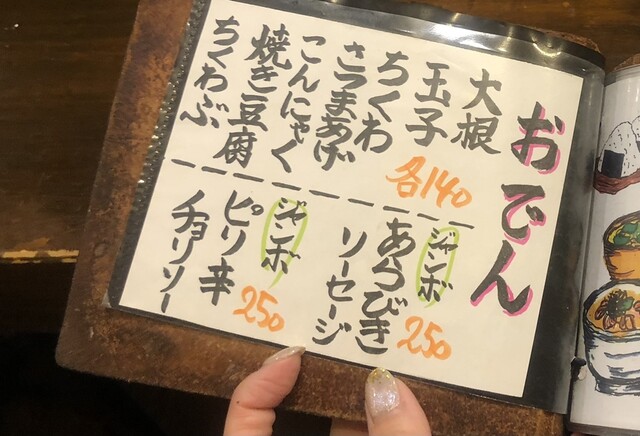 おでん
大根
玉子
ちくわ
さつまあげ
こんにゃく
焼き豆腐
ちくわぶ
各140
ジャンボ
あらびき
ソーセージ
250
ジャンボ
ピリ辛
チョリソー
250